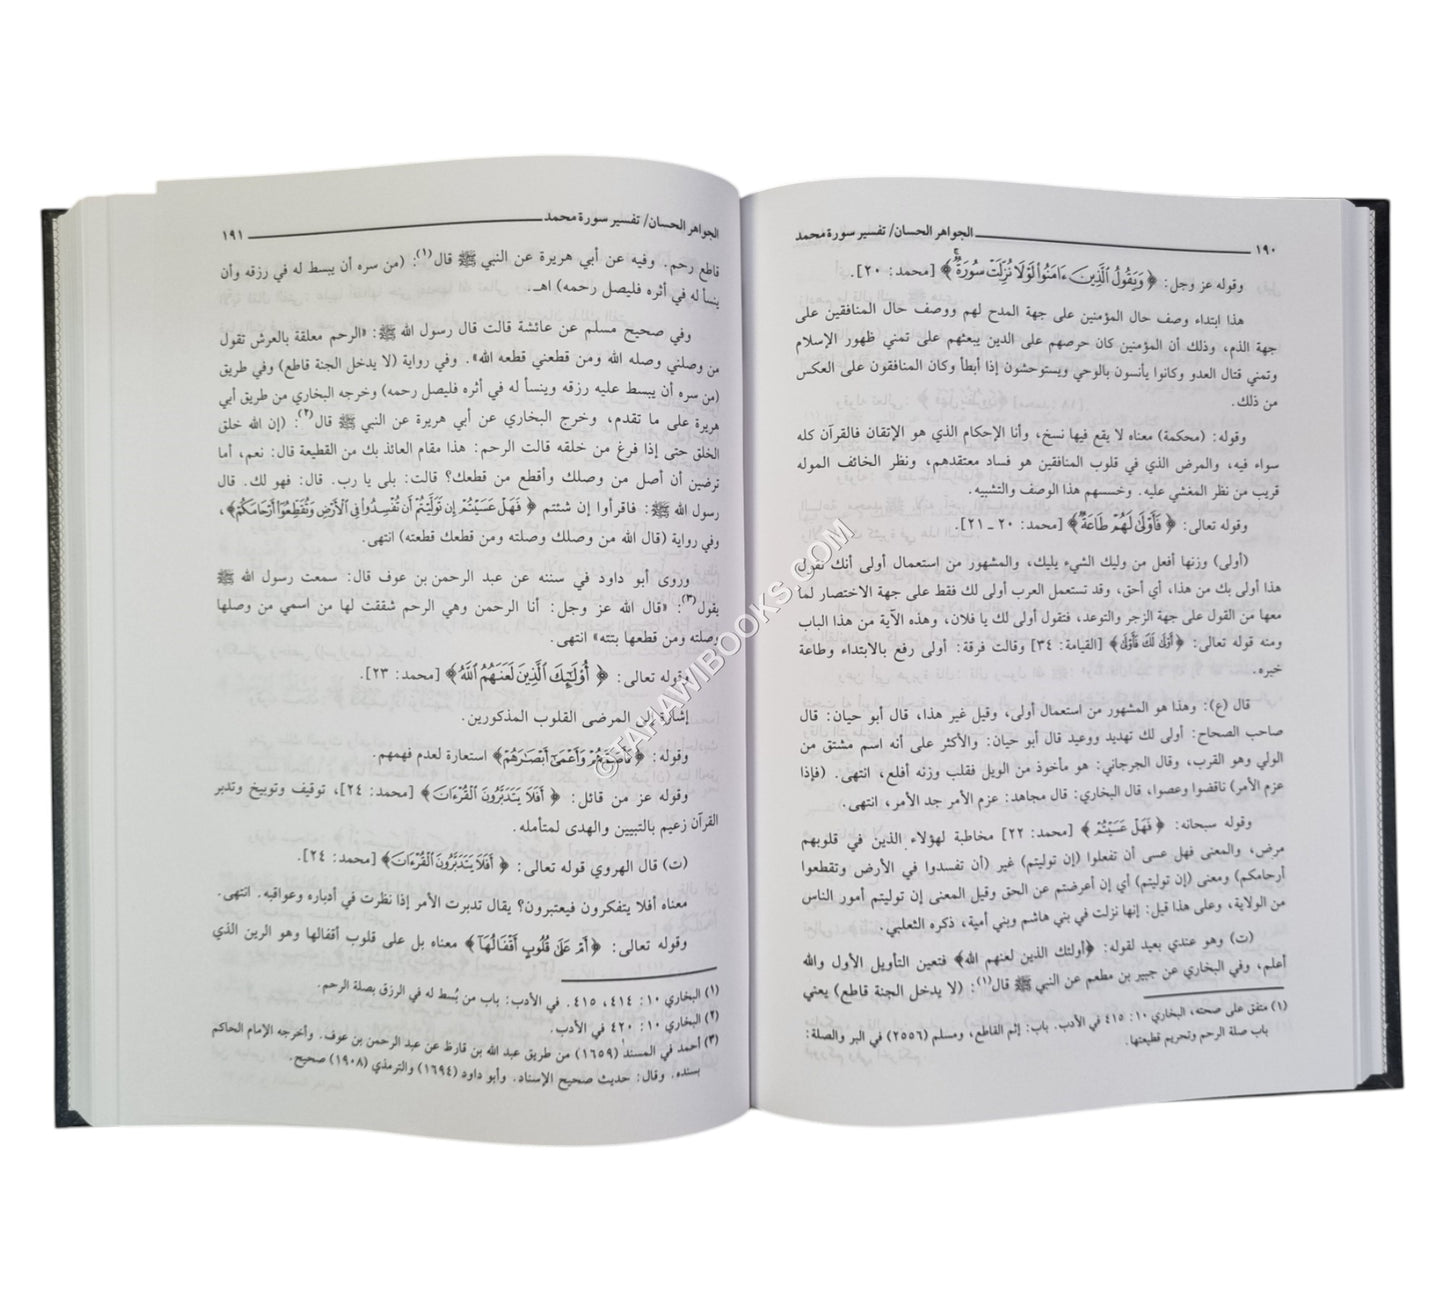 ١٩٠ الجواهر الحسان/ تفسير سورة محمد
وقوله عز وجل: ﴿وَيَقُولُ الَّذِينَ ءَامَنُوا لَوْلَا نُزِّلَتْ سُورَةٌ﴾ [محمد: ٢٠].
هذا ابتداء وصف حال المؤمنين على جهة المدح لهم ووصف حال المنافقين على
جهة الذم، وذلك أن المؤمنين كان حرصهم على الدين يبعثهم على تمني ظهور الإسلام
وتمني قتال العدو وكانوا يأنسون بالوحي ويستوحشون إذا أبطأ وكان المنافقون على العكس
من ذلك.
وقوله: (محكمة) معناه لا يقع فيها نسخ، وأنا الإحكام الذي هو الإتقان فالقرآن كله
سواء فيه، والمرض الذي في قلوب المنافقين هو فساد معتقدهم، ونظر الخائف الموله
قريب من نظر المغشي عليه. وخسسهم هذا الوصف والتشبيه.
وقوله تعالى: ﴿فَأَوْلَىٰ لَهُمْ طَاعَةٌ﴾ [محمد: ٢٠ ـ ٢١].
(أولى) وزنها أفعل من وليك الشيء يليك، والمشهور من استعمال أولى أنك تقول
هذا أولى بك من هذا، أي أحق، وقد تستعمل العرب أولى لك فقط على جهة الاختصار لما
معها من القول على جهة الزجر والتوعد، فتقول أولى لك يا فلان، وهذه الآية من هذا الباب
ومنه قوله تعالى: ﴿أَوْلَىٰ لَكَ فَأَوْلَىٰ﴾ [القيامة: ٣٤] وقالت فرقة: أولى رفع بالابتداء وطاعة
خبره.
قال (ع): وهذا هو المشهور من استعمال أولى، وقيل غير هذا، قال أبو حيان: قال
صاحب الصحاح: أولى لك تهديد ووعيد قال أبو حيان: والأكثر على أنه اسم مشتق من
الولي وهو القرب، وقال الجرجاني: هو مأخوذ من الويل فقلب وزنه أفلع، انتهى. (فإذا
عزم الأمر) ناقضوا وعصوا، قال البخاري: قال مجاهد: عزم الأمر جد الأمر، انتهى.
وقوله سبحانه: ﴿فَهَلْ عَسَيْتُمْ﴾ [محمد: ٢٢] مخاطبة لهؤلاء الذين في قلوبهم
مرض، والمعنى فهل عسى أن تفعلوا (إن توليتم) غير (أن تفسدوا في الأرض وتقطعوا
أرحامكم) ومعنى (إن توليتم) أي إن أعرضتم عن الحق وقيل المعنى إن توليتم أمور الناس
من الولاية، وعلى هذا قيل: إنها نزلت في بني هاشم وبني أمية، ذكره الثعلبي.
(ت) وهو عندي بعيد لقوله: ﴿أولئك الذين لعنهم الله﴾ فتعين التأويل الأول والله
أعلم، وفي البخاري عن جبير بن مطعم عن النبي ﷺ قال(١): (لا يدخل الجنة قاطع) يعني
(١) متفق على صحته، البخاري ١٠: ٤١٥ في الأدب. باب: إثم القاطع، ومسلم (٢٥٥٦) في البر والصلة:
باب صلة الرحم وتحريم قطيعتها.
الجواهر الحسان/ تفسير سورة محمد ١٩١
قاطع رحم. وفيه عن أبي هريرة عن النبي ﷺ قال(١): (من سره أن يبسط له في رزقه وأن
ينسأ له في أثره فليصل رحمه) اهـ.
وفي صحيح مسلم عن عائشة قالت قال رسول الله ﷺ: «الرحم معلقة بالعرش تقول
من وصلني وصله الله ومن قطعني قطعه الله». وفي رواية (لا يدخل الجنة قاطع) وفي طريق
(من سره أن يبسط عليه رزقه وينسأ له في أثره فليصل رحمه) وخرجه البخاري من طريق أبي
هريرة على ما تقدم، وخرج البخاري عن أبي هريرة عن النبي ﷺ قال(٢): (إن الله خلق
الخلق حتى إذا فرغ من خلقه قالت الرحم: هذا مقام العائذ بك من القطيعة قال: نعم، أما
ترضين أن أصل من وصلك وأقطع من قطعك؟ قالت: بلى يا رب. قال: فهو لك. قال
رسول الله ﷺ: فاقرأوا إن شئتم ﴿فَهَلْ عَسَيْتُمْ إِن تَوَلَّيْتُمْ أَن تُفْسِدُوا فِي الْأَرْضِ وَتُقَطِّعُوا أَرْحَامَكُمْ﴾،
وفي رواية (قال الله من وصلك وصلته ومن قطعك قطعته) انتهى.
وروى أبو داود في سننه عن عبد الرحمن بن عوف قال: سمعت رسول الله ﷺ
يقول(٣): «قال الله عز وجل: أنا الرحمن وهي الرحم شققت لها من اسمي من وصلها
وصلته ومن قطعها بتته» انتهى.
وقوله تعالى: ﴿أُوْلَٰئِكَ الَّذِينَ لَعَنَهُمُ اللَّهُ﴾ [محمد: ٢٣].
إشارة إلى المرضى القلوب المذكورين.
وقوله: ﴿فَأَصَمَّهُمْ وَأَعْمَىٰ أَبْصَارَهُمْ﴾ استعارة لعدم فهمهم.
وقوله عز من قائل: ﴿أَفَلَا يَتَدَبَّرُونَ الْقُرْءَانَ﴾ [محمد: ٢٤]، توقيف وتوبيخ وتدبر
القرآن زعيم بالتبيين والهدى لمتأمله.
(ت) قال الهروي قوله تعالى: ﴿أَفَلَا يَتَدَبَّرُونَ الْقُرْءَانَ﴾ [محمد: ٢٤].
معناه أفلا يتفكرون فيعتبرون؟ يقال تدبرت الأمر إذا نظرت في أدباره وعواقبه. انتهى.
وقوله تعالى: ﴿أَمْ عَلَىٰ قُلُوبٍ أَقْفَالُهَا﴾ معناه بل على قلوب أقفالها وهو الرين الذي
(١) البخاري ١٠: ٤١٤، ٤١٥. في الأدب: باب من يُسط له في الرزق بصلة الرحم.
(٢) البخاري ١٠: ٤٢٠ في الأدب.
(٣) أحمد في المسند (١٦٥٩) من طريق عبد الله بن قارظ عن عبد الرحمن بن عوف. وأخرجه الإمام الحاكم
بسنده. وقال: حديث صحيح الإسناد. وأبو داود (١٦٩٤) والترمذي (١٩٠٨) صحيح.
©TAHAWIBOOKS.COM